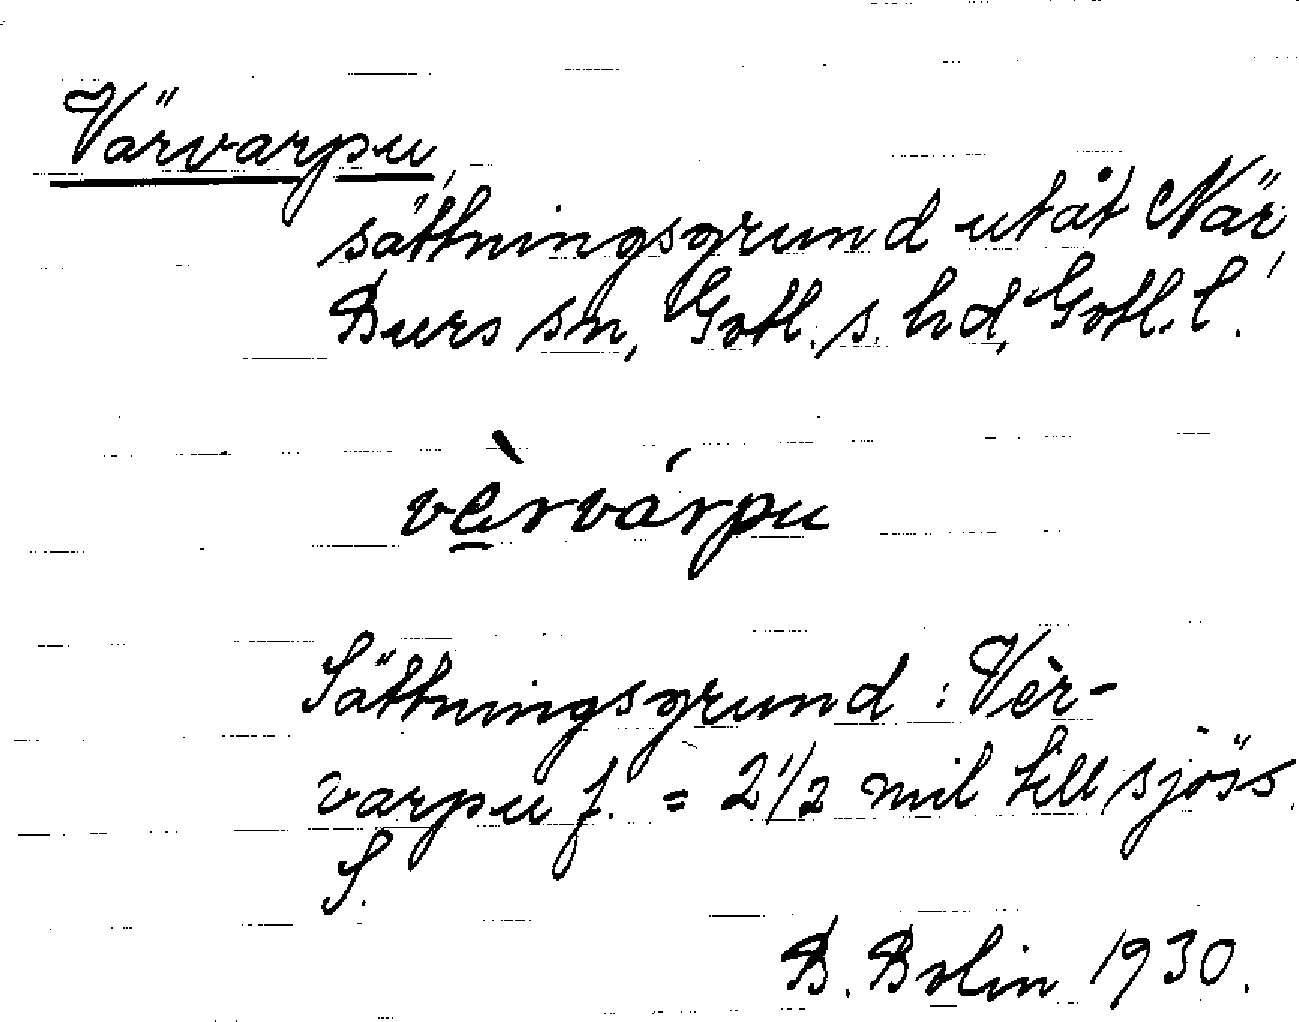 Värvarpu,
sättningsgrund utåt När,
Burs sn, Gotl. s. hd, Gotl. l.
vèrvárpu
Sättningsgrund: Vèr-
varpu f. = 2 1/2 mil till sjöss.
S.
B. Bolin 1930.